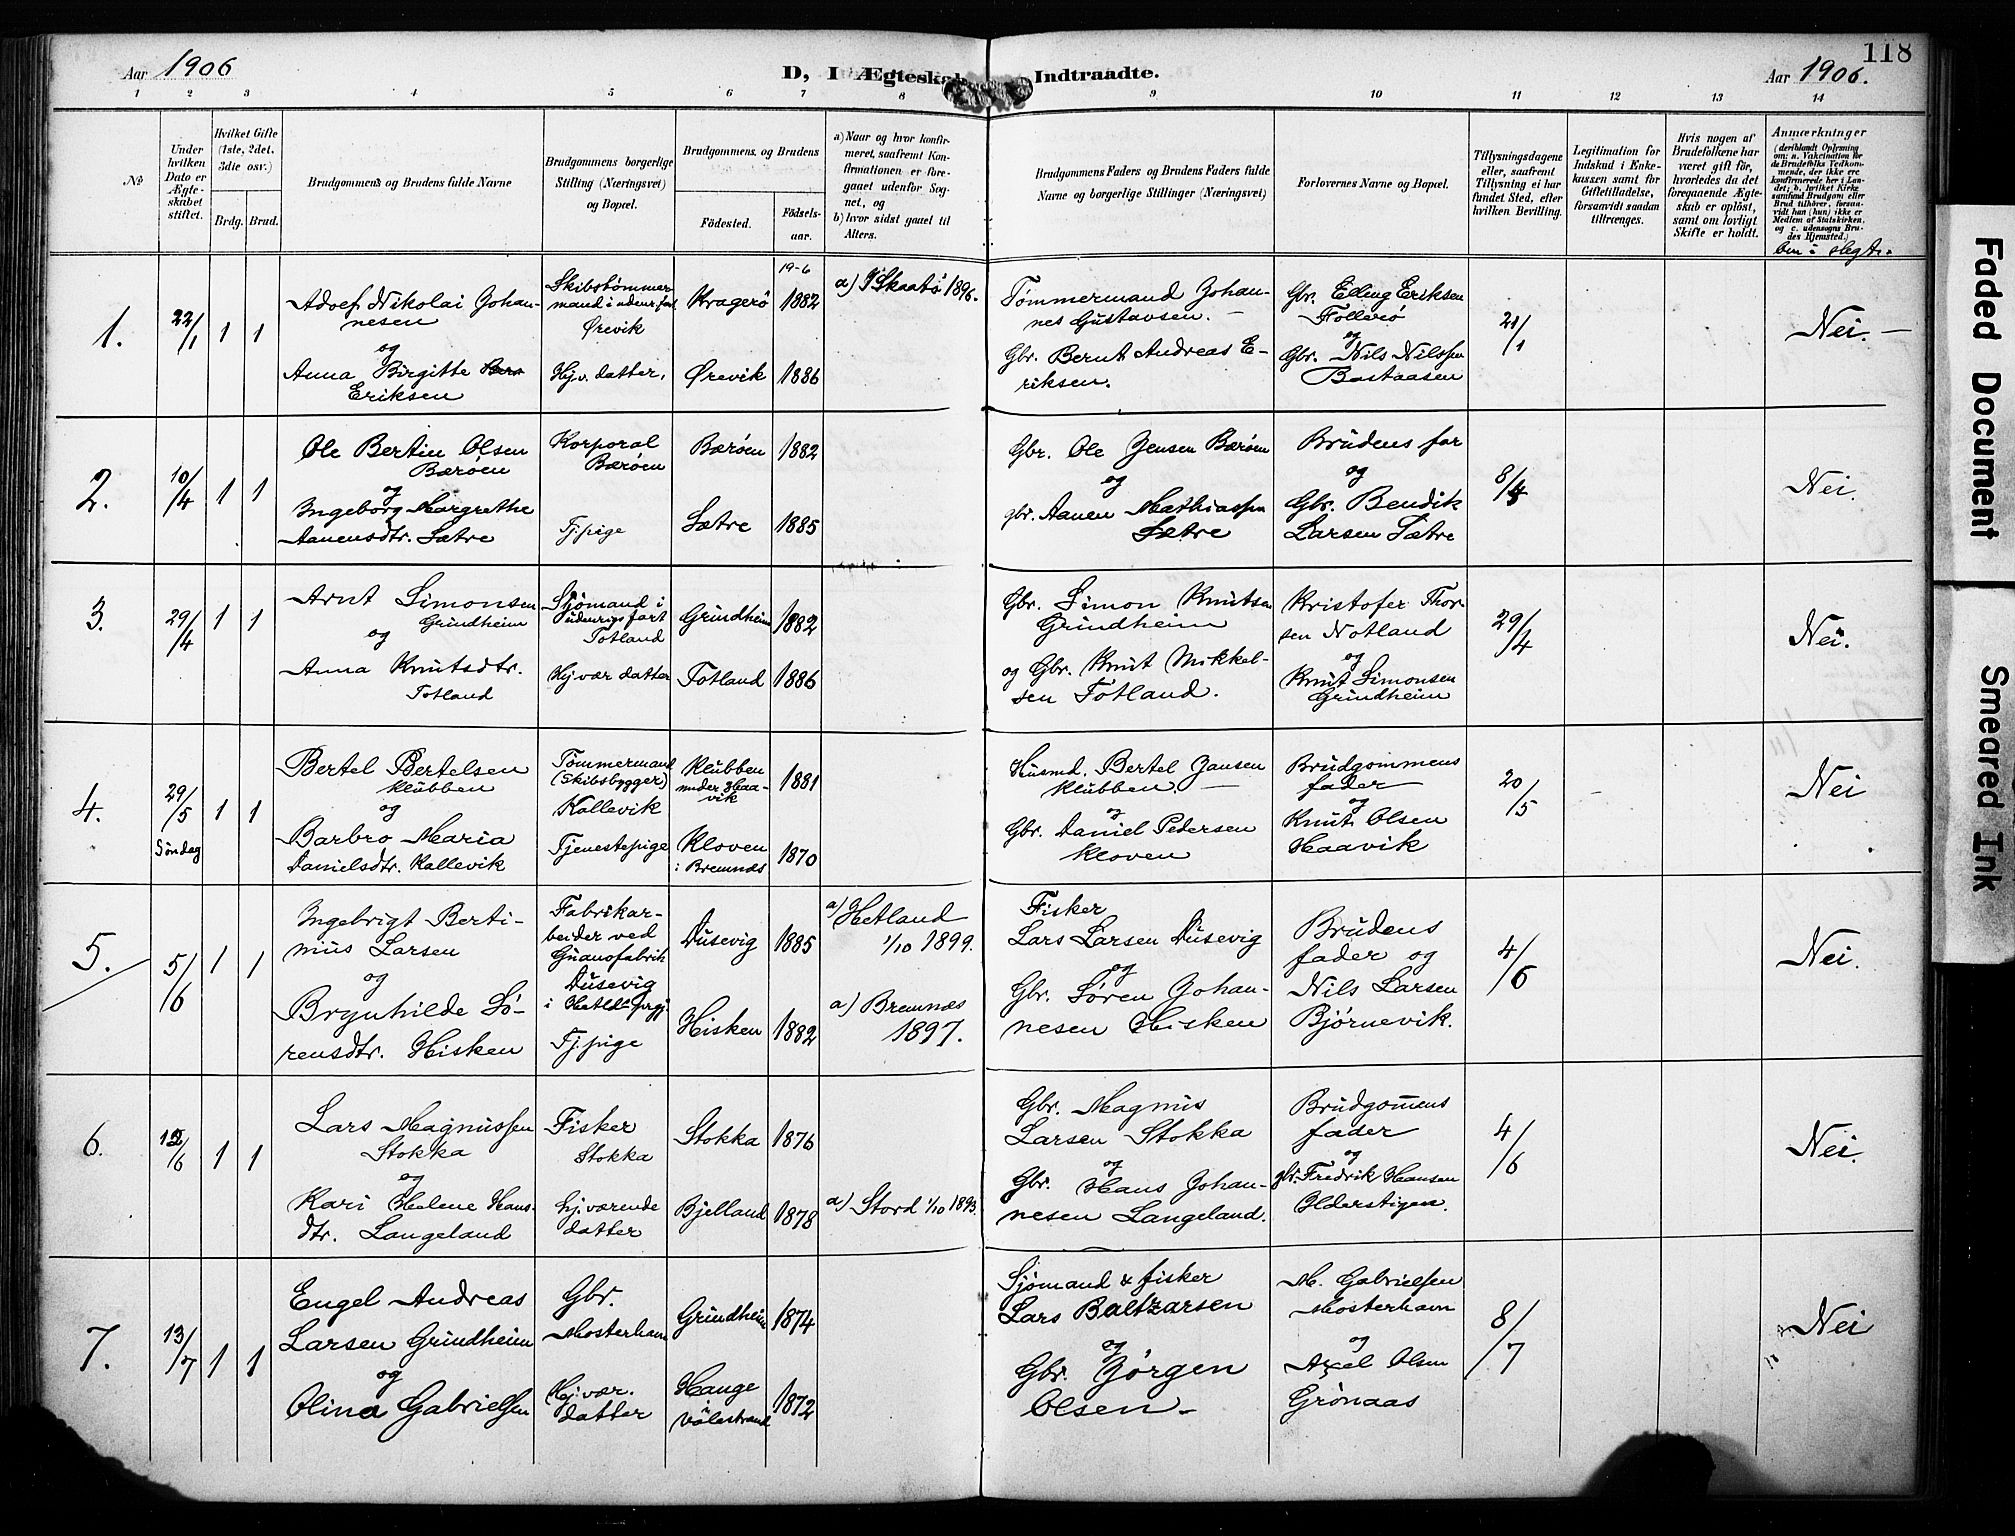 118
Aar 1906
D, I Ægteskab Indtraadte.
Aar 1906.
1 2 3 4 5 6 7 8 9 10 11 12 13 14
№
Under hvilken Dato er Ægteskabet stiftet.
Hvilket Gifte (1ste, 2det, 3die osv.)
Brdg. Brud.
Brudgommens og Brudens fulde Navne
Brudgommens borgerlige Stilling (Næringsvei) og Bopæl.
Brudgommens og Brudens
Fødested.
Fødselsaar.
a) Naar og hvor konfirmeret, saafremt Konfirmationen er foregaaet udenfor Sognet, og
b) hvor sidst gaaet til Alters.
Brudgommens Faders og Brudens Faders fulde Navne og borgerlige Stillinger (Næringsvei)
Forlovernes Navne og Bopæl.
Tillysningsdagene eller, saafremt Tillysning ei har fundet Sted, efter hvilken Bevilling.
Legitimation for Indskud i Enkekassen samt for Giftetilladelse, forsaavidt saadan tiltrænges.
Hvis nogen af Brudefolkene har været gift før, hvorledes da det foregaaende Ægteskab er opløst, samt om lovligt Skifte er holdt.
Anmærkninger
(deriblandt Oplysning om: a. Vakcination for de Brudefolks Vedkommende, der ikke ere konfirmerede her i Landet; b. hvilket Kirkesamfund Brudgom eller Brud tilhører, forsaavidt han (hun) ikke er Medlem af Statskirken, og c. udensogns Brudes Hjemsted.)
1.
22/1
1 1
Adolf Nikolai Johannesen
og
Anna Birgitte
Eriksen
Skibstømmermand i udenr. fart
Ørevik
Hjv. datter,
Kragerø
Ørevik
19-6
1882
1886
a) Skaatø 1896.
Tømmermand Johannes Gustavsen. —
Gbr. Bernt Andreas Eriksen.
Gbr. Elling Eriksen
Føllesø
og
Gbr. Nils Nilssen
Bastaasen
21/1
Nei. —
2.
10/4
1 1
Ole Bertin Olsen
Barøen
og
Ingeborg Margrethe
Aanensdtr. Sætre
Korporal
Barøen
Tj.pige
Barøen
Sætre
1882
1885
Gbr. Ole Jensen Barøen
og
gbr. Aanen Mathiassen
Sætre
Brudens far
og
Gbr. Bendik
Larsen Sætre
8/4
Nei.
3.
29/4
1 1
Arnt Simonsen
Grindheim
og
Anna Knutsdtr.
Totland
Sjømand i
udenrigsfart
Totland
Hj.vær datter
Grindheim
Totland
1882
1886
Gbr. Simon Knutsen
Grindheim
og Gbr. Knut Mikkelsen Totland.
Kristofer Thorsen Notland
og
Knut Simonsen
Grindheim
29/4
Nei.
4.
29/5
Søndag
1 1
Bertel Bertelsen
Klubben
og
Barbro Maria
Danielsdtr. Kallevik
Tømmermand
(Skibsbygger)
Kallevik
Tjenestepige
Klubben
under Haavik
Kloven
i Bremnes
1881
1870
Husmd. Bertel Jansen
Klubben. —
og
Gbr. Daniel Pedersen
Kloven
Brudgommens
fader
og
Knut Olsen
Haavik
20/5
Nei
5.
5/6
1 1
Ingebrigt Bertinius Larsen
og
Brynhilde Sørensdtr. Hisken
Fabrikarbeider ved
Guanofabrik
Dusevig
i Hetlds prgj.
Tj.pige
Dusevig
Hisken
1885
1882
a) Hetland
1/10 1899.
a) Bremnes
1897.
Fisker
Lars Larsen Dusevig
og
Gbr. Søren Johannesen Hisken
Brudens
fader og
Nils Larsen
Bjørnevik.
4/6
Nei.
6.
12/6
1 1
Lars Magnussen
Stokka
og
Kari Helene Hansdtr. Langeland
Fisker
Stokka
hj.værende
datter
Stokka
Bjelland
1876
1878
a) Stord 1/10 1893.
Gbr. Magnus
Larsen Stokka
og
Gbr. Hans Johannesen Langeland.
Brudgom̅ens
fader
og
gbr. Fredrik Hansen
Olderstigen.
4/6
Nei.
7.
13/7
1 1
Engel Andreas
Larsen Grindheim
og
Olina Gabrielsen
Gbr.
Mosterhavn
Hj.vær.
datter
Grindheim
Hauge
i
Valestrand
1874
1872
Sjømand & fisker
Lars Baltzarsen
og
Gbr. Jørgen
Olsen —
M. Gabrielsen
Mosterhavn
og
Axel Olsen
Grønaas
8/7
Nei
Faded Document
Smeared Ink